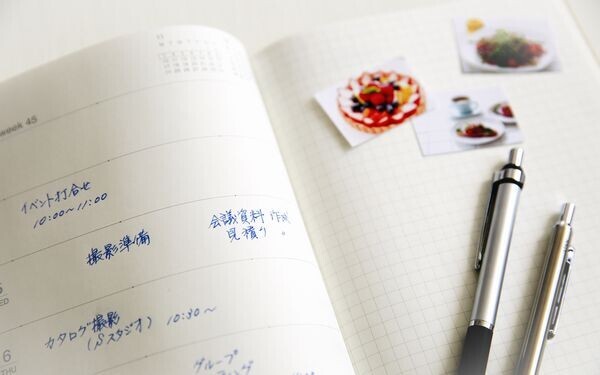 11
week 45
イベント打合せ
10:00〜11:00
撮影準備
会議資料 作成
見積り。
5
WED
カタログ撮影
(Sスタジオ) 10:30〜
6
グループ